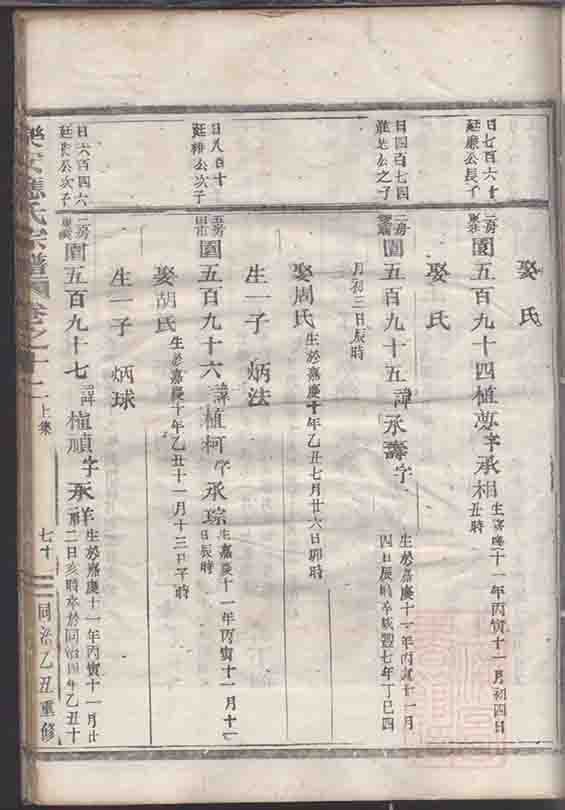 娶 氏
日七百六十
廷 公長子
二房
園五百九十四植 字承相
生 十一年丙寅十一月初四日
丑時
娶 氏
日四百七四
公之子
二房
園五百九十五諱承壽字
生於嘉慶十一年丙寅十一月
四日辰時卒咸豐七年丁巳四
月初三日辰時
娶周氏 生於嘉慶十年乙丑七月廿六日卯時
生一子 炳法
日八百十
廷 公次子
園五百九十六諱植柯字承琮
生嘉慶十一年丙寅十一月十一
日辰時
娶胡氏 生於嘉慶十年乙丑十一月十三日子時
生一子 炳球
日六百四六
廷 公次子
二房
園五百九十七諱植順字承祥
生於嘉慶十一年丙寅十一月廿
二日亥時卒於同治四年乙丑十
樂安 氏宗譜 卷之十二 上集 七十 同治乙丑重修